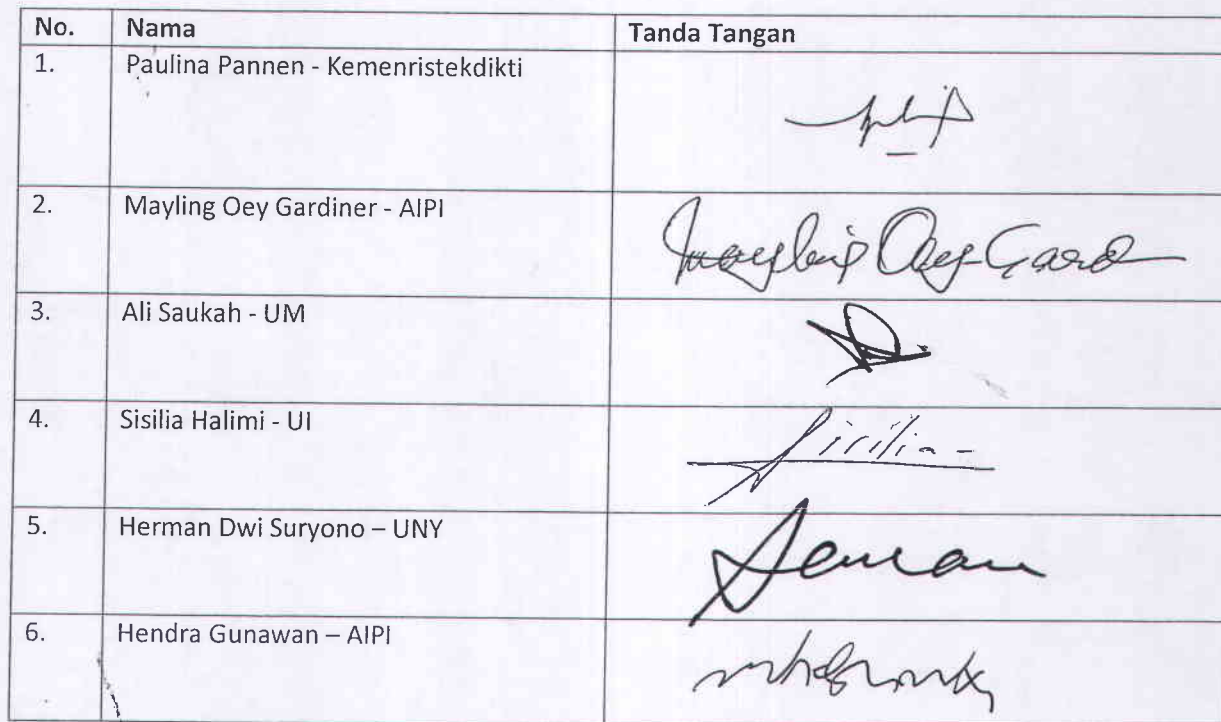 No. Nama Tanda Tangan
1. Paulina Pannen - Kemenristekdikti
2. Mayling Oey Gardiner - AIPI
Mayling Oey-Gard
3. Ali Saukah - UM
4. Sisilia Halimi - UI
Sisilia
5. Herman Dwi Suryono – UNY
6. Hendra Gunawan – AIPI